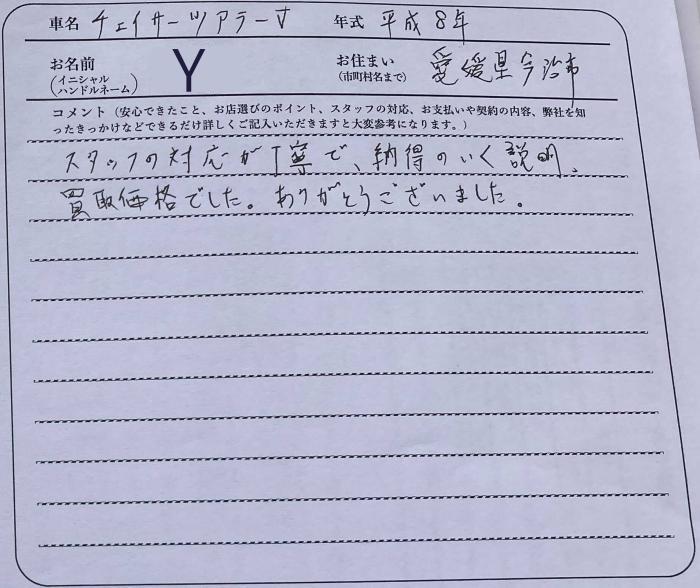 車名 チェイサーツアラーV 年式 平成8年
お名前 Y お住まい 愛媛県今治市
(イニシャル (市町村名まで)
ハンドルネーム)
コメント（安心できたこと、お店選びのポイント、スタッフの対応、お支払いや契約の内容、弊社を知
ったきっかけなどできるだけ詳しくご記入いただきますと大変参考になります。）
スタッフの対応が丁寧で、納得のいく説明、
買取価格でした。ありがとうございました。